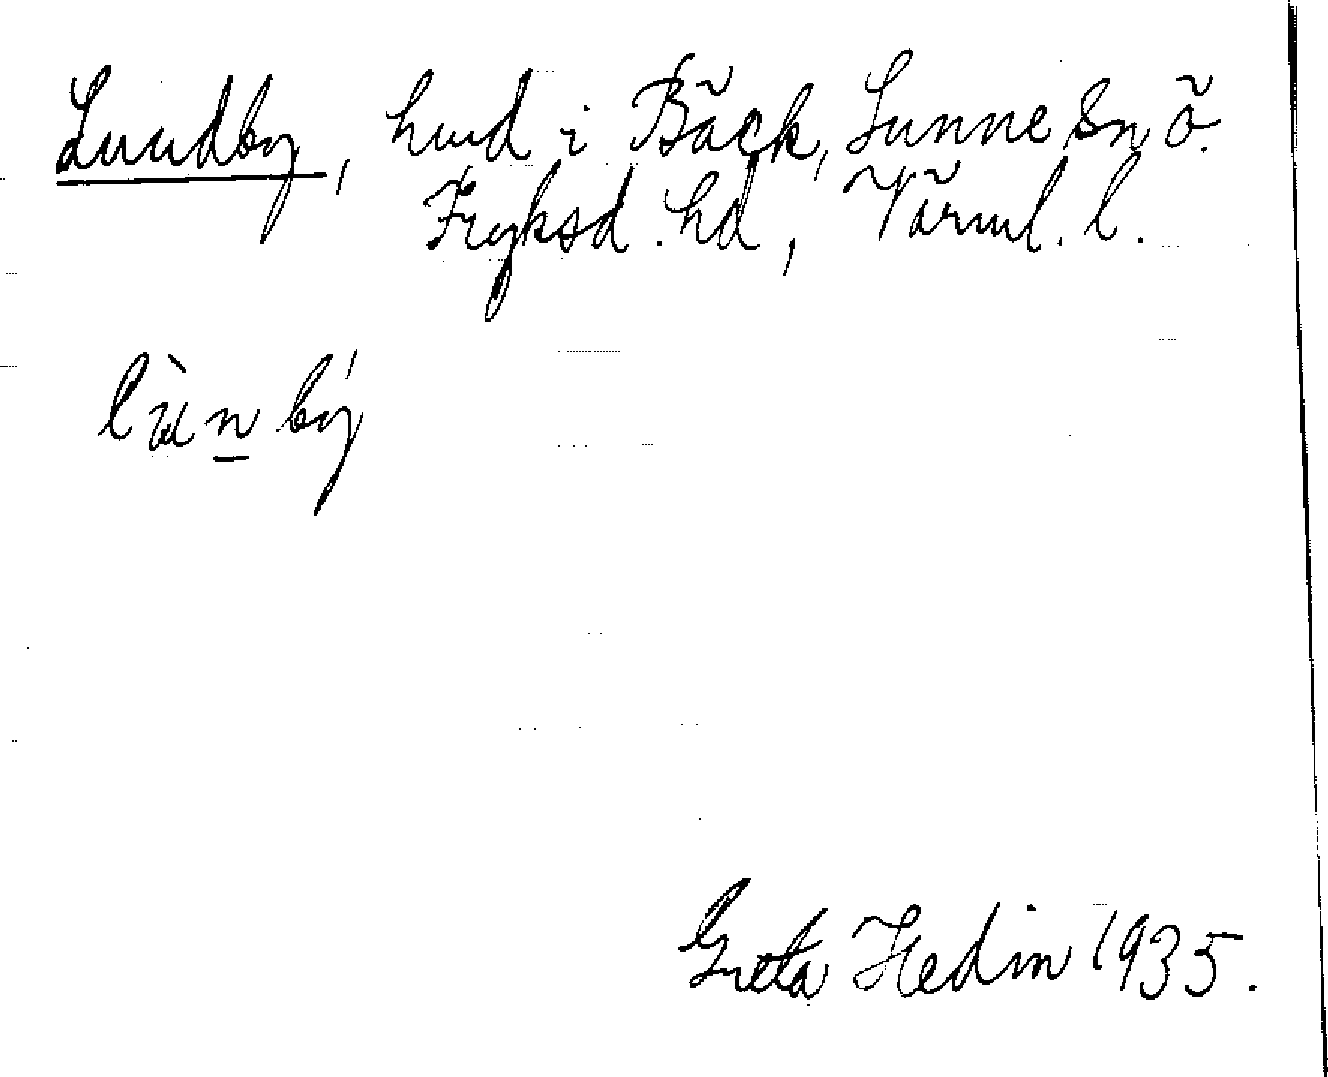 Lundby, hmd i Bäck, Sunne Sn Ö.
Fryksd. hd, Värml. l.
lùnbý
Greta Hedin 1935.